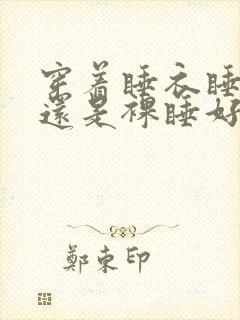 穿着睡衣睡
還是裸睡好
鄭東印